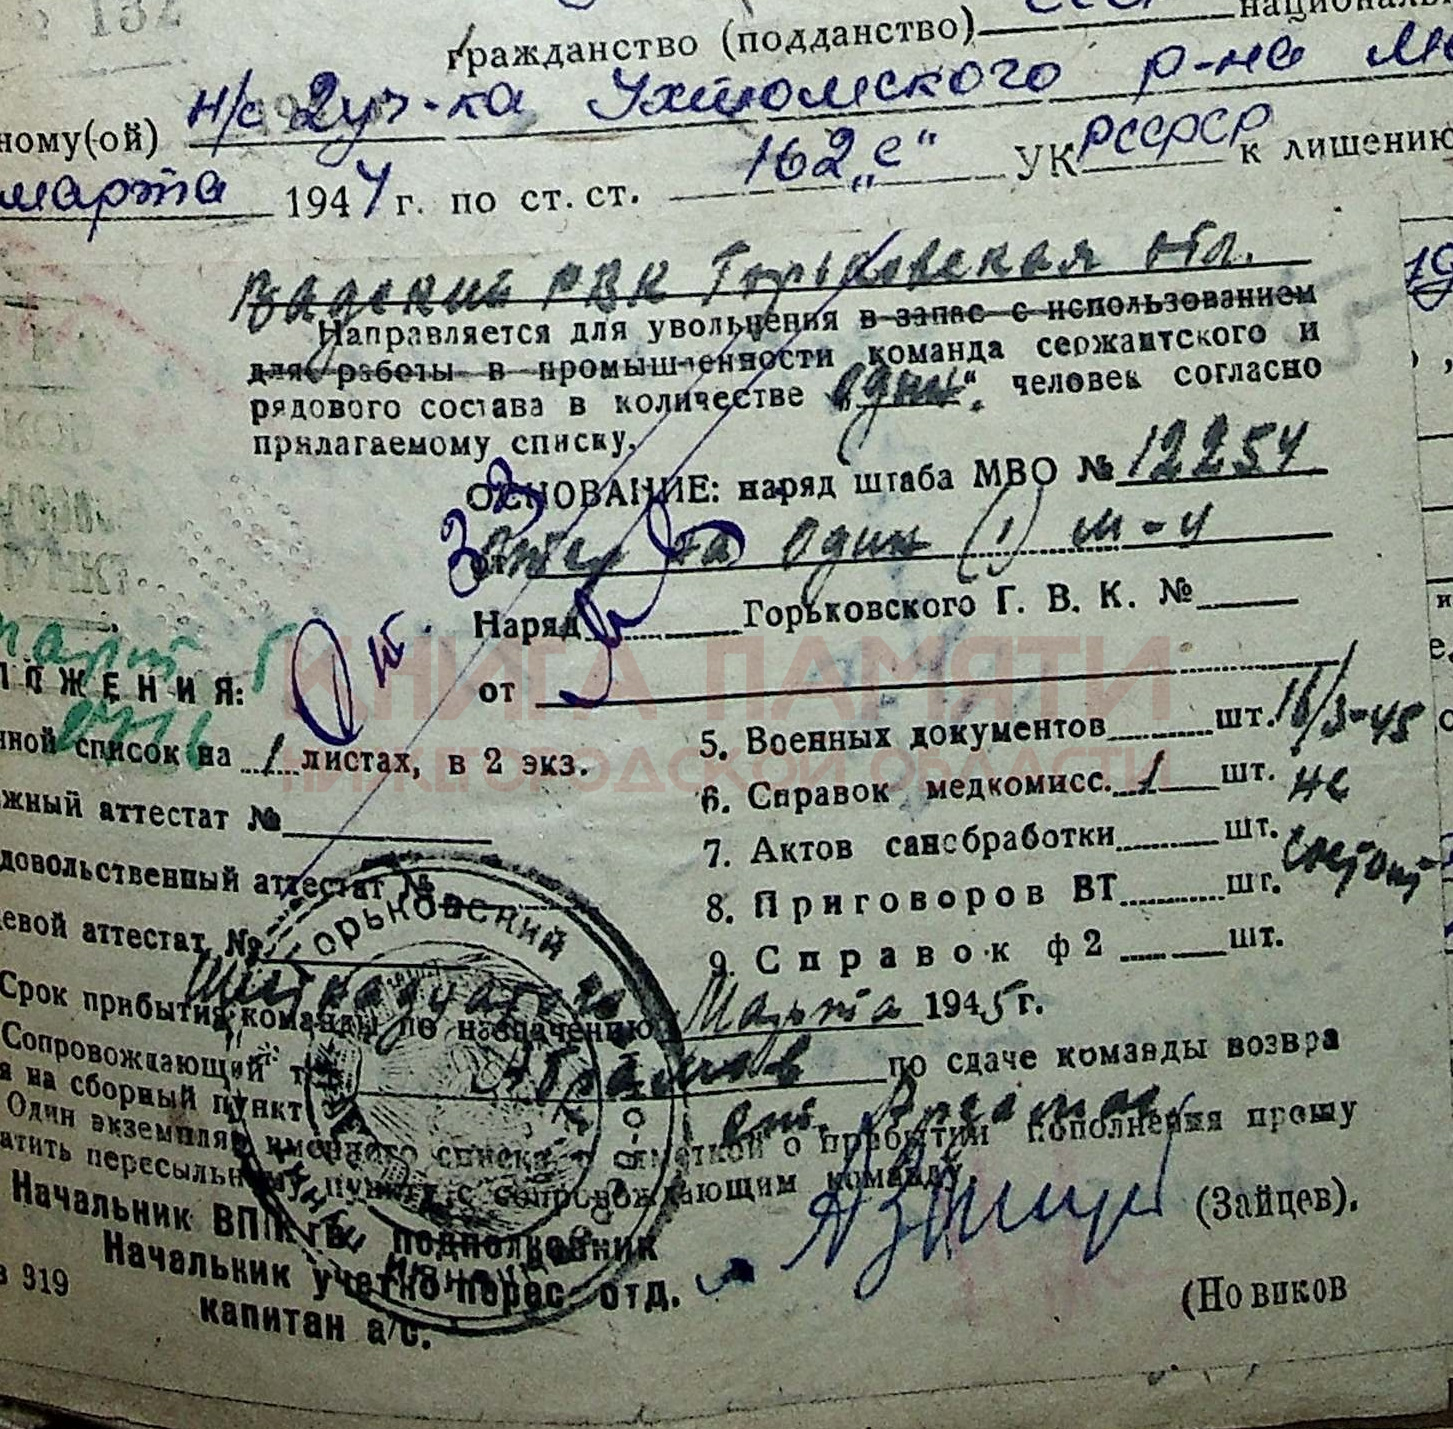 132
гражданство (подданство) СССР национальн
н/с 2 уч-ка Ухтомского р-на
ному(-ой)
марта 1944 г. по ст. ст. 162 „е“ УК РСФСР к лишению
Вадский РВК Горьковская обл.
Направляется для увольнения в запас с использованием
для работы в промышленности команда сержантского и
рядового состава в количестве „один“ человек согласно
прилагаемому списку.
ОСНОВАНИЕ: наряд штаба МВО № 12254
на один (1) м-ц
Наряд Горьковского Г. В. К. №
от
ЛОЖЕНИЯ:
5. Военных документов шт. 16/3-45
нной список на 1 листах, в 2 экз.
6. Справок медкомисс. 1 шт. не
жный аттестат №
7. Актов санобработки шт.
довольственный аттестат №
8. Приговоров ВТ шт.
евой аттестат №
9. Справок ф 2 шт.
Срок прибытия команды по назначению Марта 1945 г.
Сопровождающий по сдаче команды возвра
я на сборный пункт ст. Арзамас
Один экземпляр именного списка с отметкой о прибытии пополнения прошу
атить пересыльному пункту с сопровождающим команду.
Начальник ВПП ГВК подполковник (Зайцев).
Начальник учетно-перес. отд.
капитан а/с. (Новиков
з 919
ГОРЬКОВСКИЙ
КНИГА ПАМЯТИ
НИЖЕГОРОДСКОЙ ОБЛАСТИ